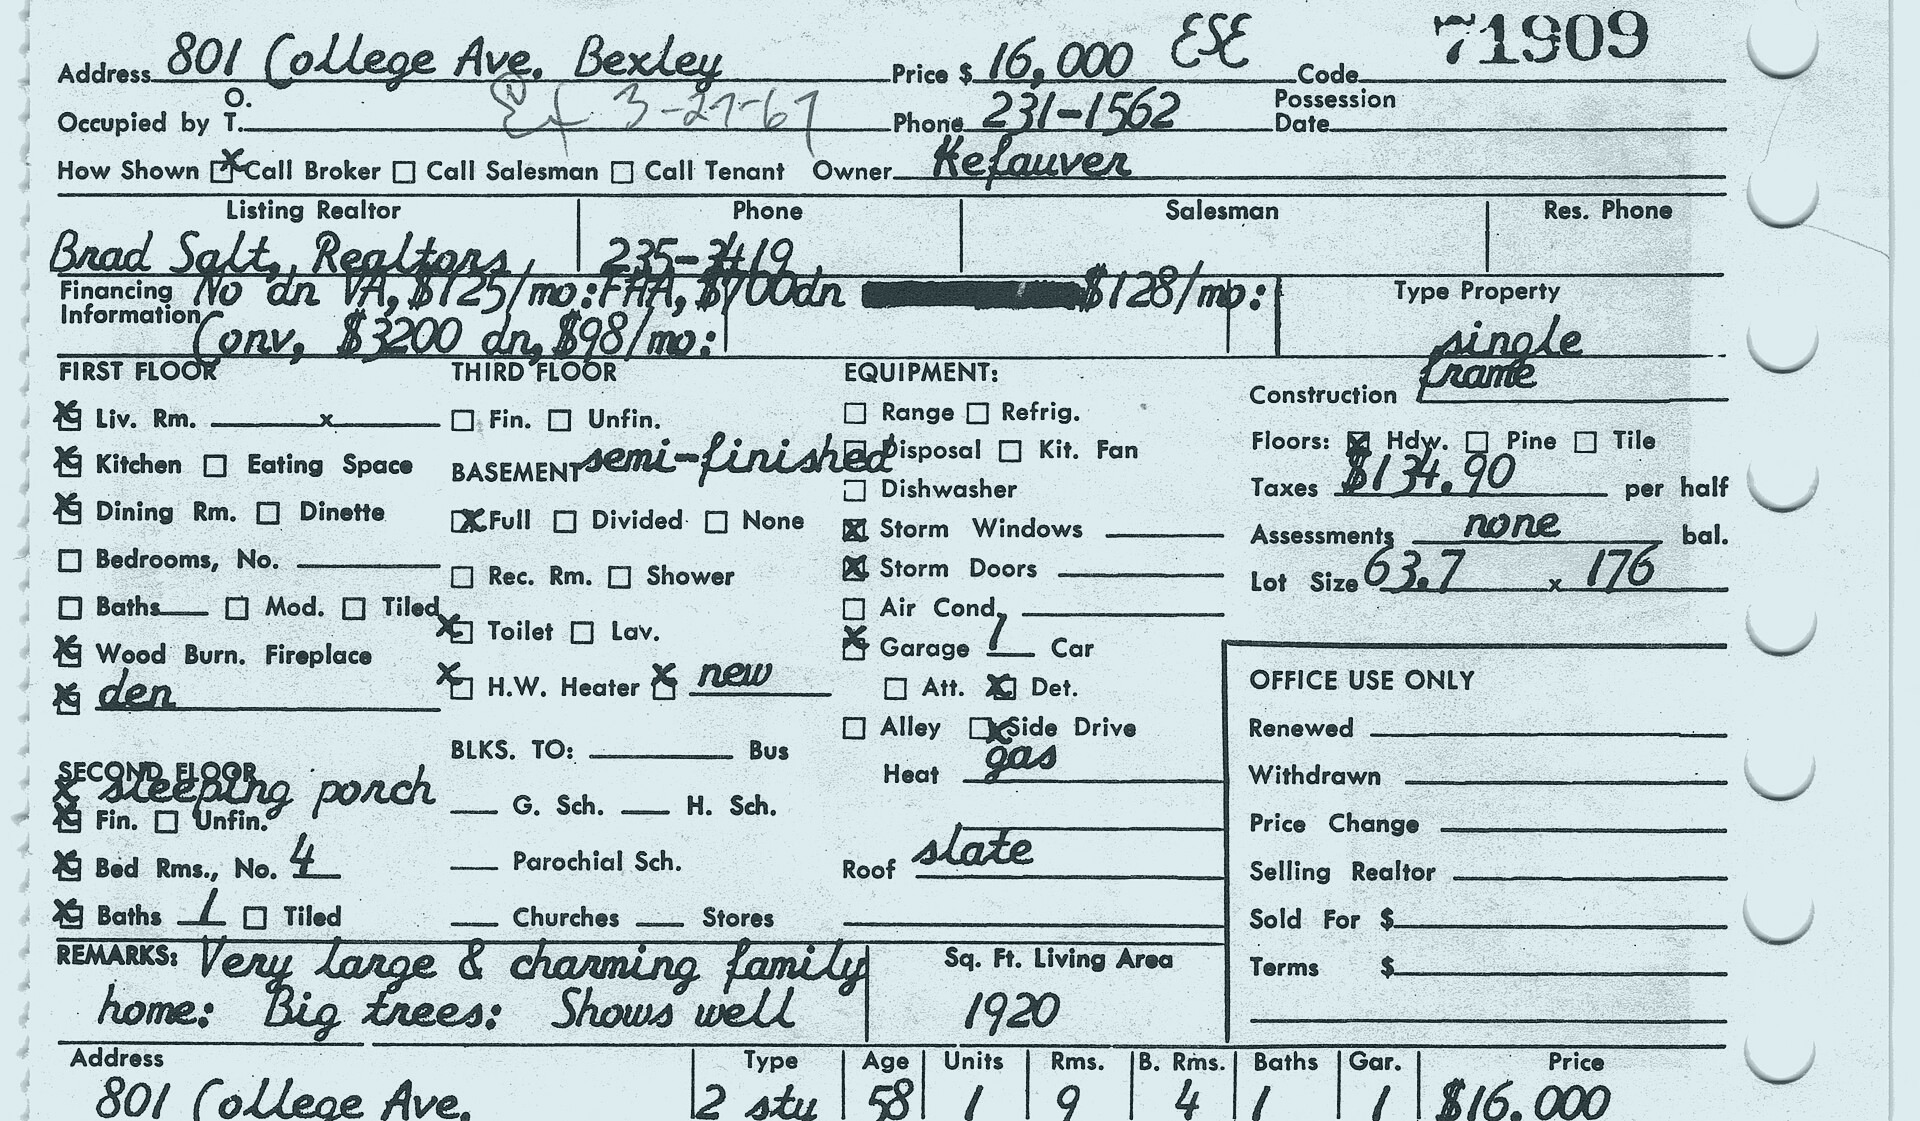 Address 801 College Ave, Bexley Price $ 16,000 ESE Code 71909
Occupied by O. T. Ex 3-27-67 Phone 231-1562 Possession Date
How Shown ☒ Call Broker ☐ Call Salesman ☐ Call Tenant Owner Kefauver
Listing Realtor Phone Salesman Res. Phone
Brad Salt, Realtors 235-3419
Financing Information No dn VA, $125/mo: FHA, $700dn $128/mo:
Conv, $3200 dn, $98/mo:
Type Property
single
FIRST FLOOR
☒ Liv. Rm. x
☒ Kitchen ☐ Eating Space
☒ Dining Rm. ☐ Dinette
☐ Bedrooms, No.
☐ Baths ☐ Mod. ☐ Tiled
☒ Wood Burn. Fireplace
☒ den
SECOND FLOOR
x sleeping porch
☒ Fin. ☐ Unfin.
☒ Bed Rms., No. 4
☒ Baths 1 ☐ Tiled
THIRD FLOOR
☐ Fin. ☐ Unfin.
BASEMENT semi-finished
☒ Full ☐ Divided ☐ None
☐ Rec. Rm. ☐ Shower
☒ Toilet ☐ Lav.
☒ H.W. Heater ☒ new
BLKS. TO: Bus
G. Sch. H. Sch.
Parochial Sch.
Churches Stores
EQUIPMENT:
☐ Range ☐ Refrig.
☐ Disposal ☐ Kit. Fan
☐ Dishwasher
☒ Storm Windows
☒ Storm Doors
☐ Air Cond.
☒ Garage 1 Car
☐ Att. ☒ Det.
☐ Alley ☒ Side Drive
Heat gas
Roof slate
Construction frame
Floors: ☒ Hdw. ☐ Pine ☐ Tile
Taxes $134.90 per half
Assessments none bal.
Lot Size 63.7 x 176
OFFICE USE ONLY
Renewed
Withdrawn
Price Change
Selling Realtor
Sold For $
Terms $
REMARKS: Very large & charming family
home: Big trees: Shows well
Sq. Ft. Living Area
1920
Address Type Age Units Rms. B. Rms. Baths Gar. Price
801 College Ave. 2 sty 58 1 9 4 1 1 $16,000